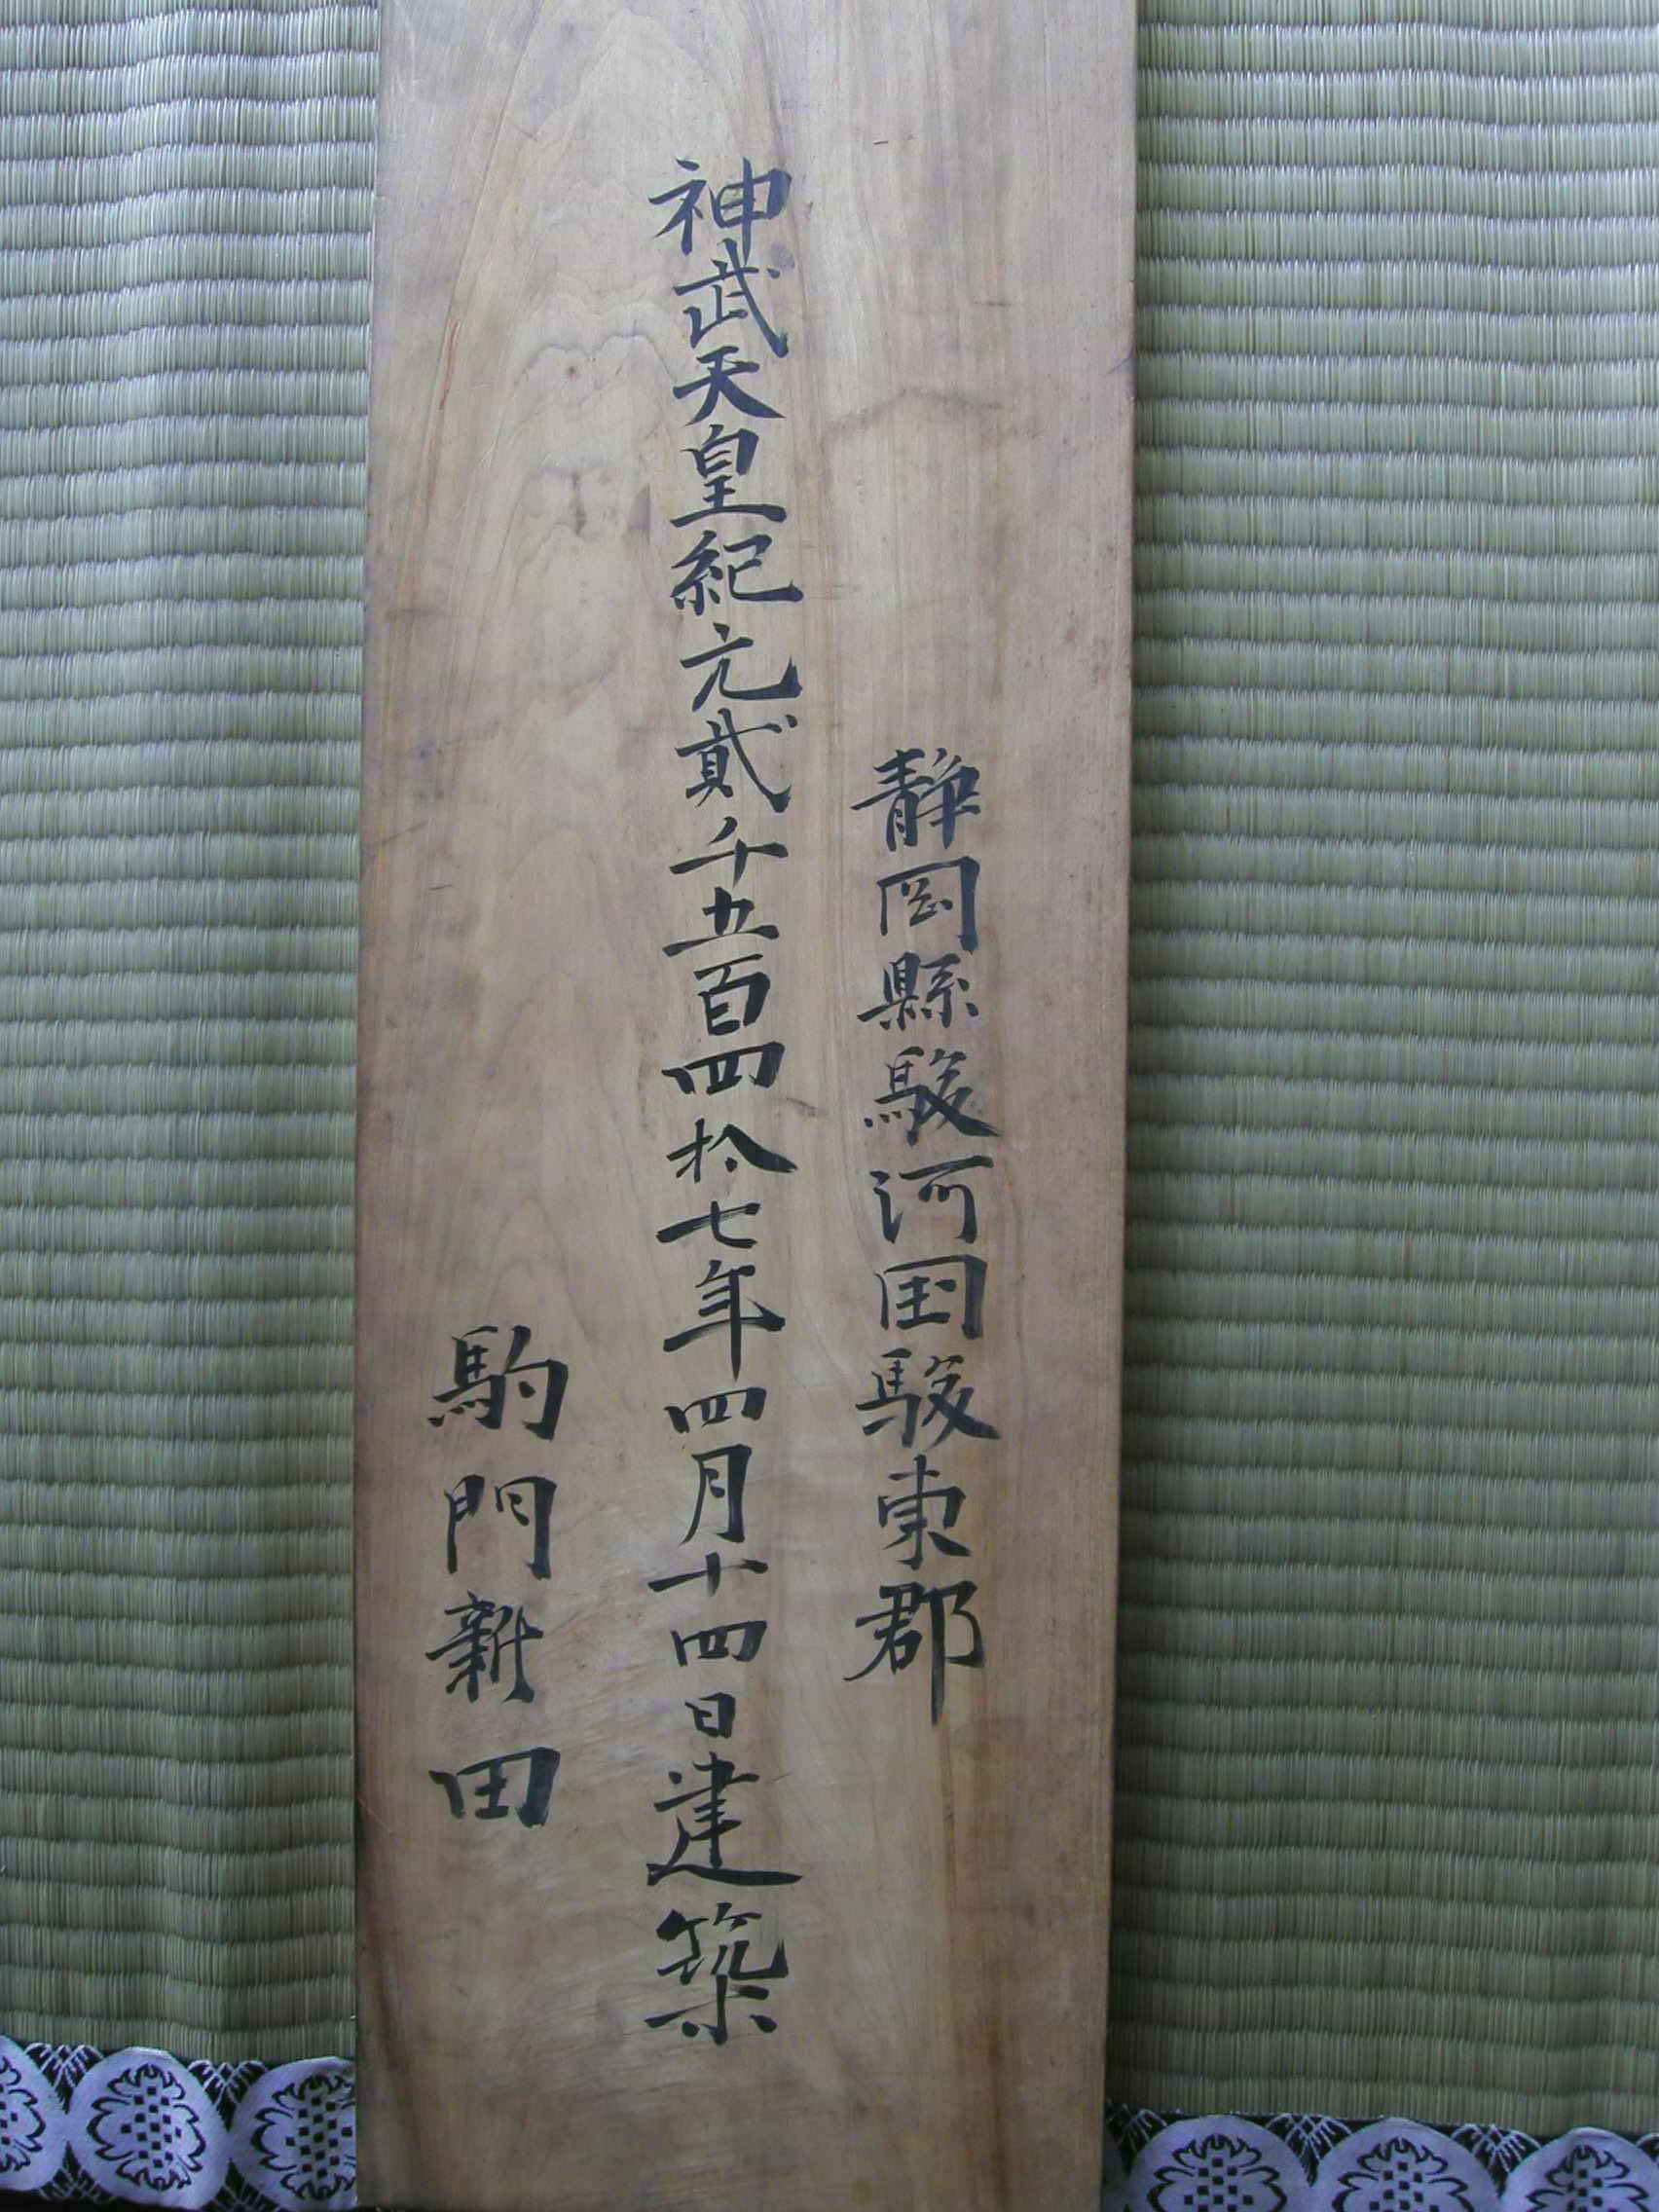 静岡縣駿河国駿東郡
神武天皇紀元貳千五百四拾七年四月十四日建築
駒門新田